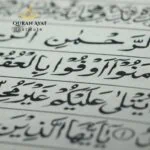 QURAN AYAT
الرَّحْمٰنِ
مَنُوٓا أَوْفُوا بِالْعُقُ
يُتْلَىٰ عَلَيْكُمْ غَيْرَ مُحِ
يٰٓأَيُّهَا الَّذِينَ